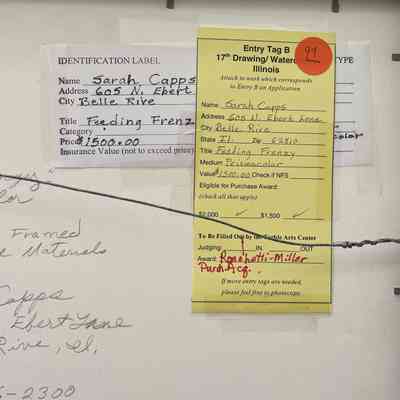 IDENTIFICATION LABEL
Name Sarah Capps
Address 605 N. Ebert
City Belle Rive
Title Feeding Frenz
Category
Price $1500.00
Insurance Value (not to exceed price)
TYPE
Entry Tag B
17th Drawing/Waterc
Illinois
91
Attach to work which corresponds
to Entry B on Application
Name Sarah Capps
Address 605 N. Ebert Lane
City Belle Rive
State Il. Zip 62810
Title Feeding Frenzy
Medium Prismacolor
Value $1500.00 Check if NFS
Eligible for Purchase Award:
(check all that apply)
$2,000 ✓ $1,500 ✓
To Be Filled Out by the Tarble Arts Center
Judging: IN OUT
Award: Ronchetti-Miller
Purch. Acq.
If more entry tags are needed,
please feel free to photocopy.
Framed
Materials
Capps
Ebert Lane
Rive, Il.
-2300